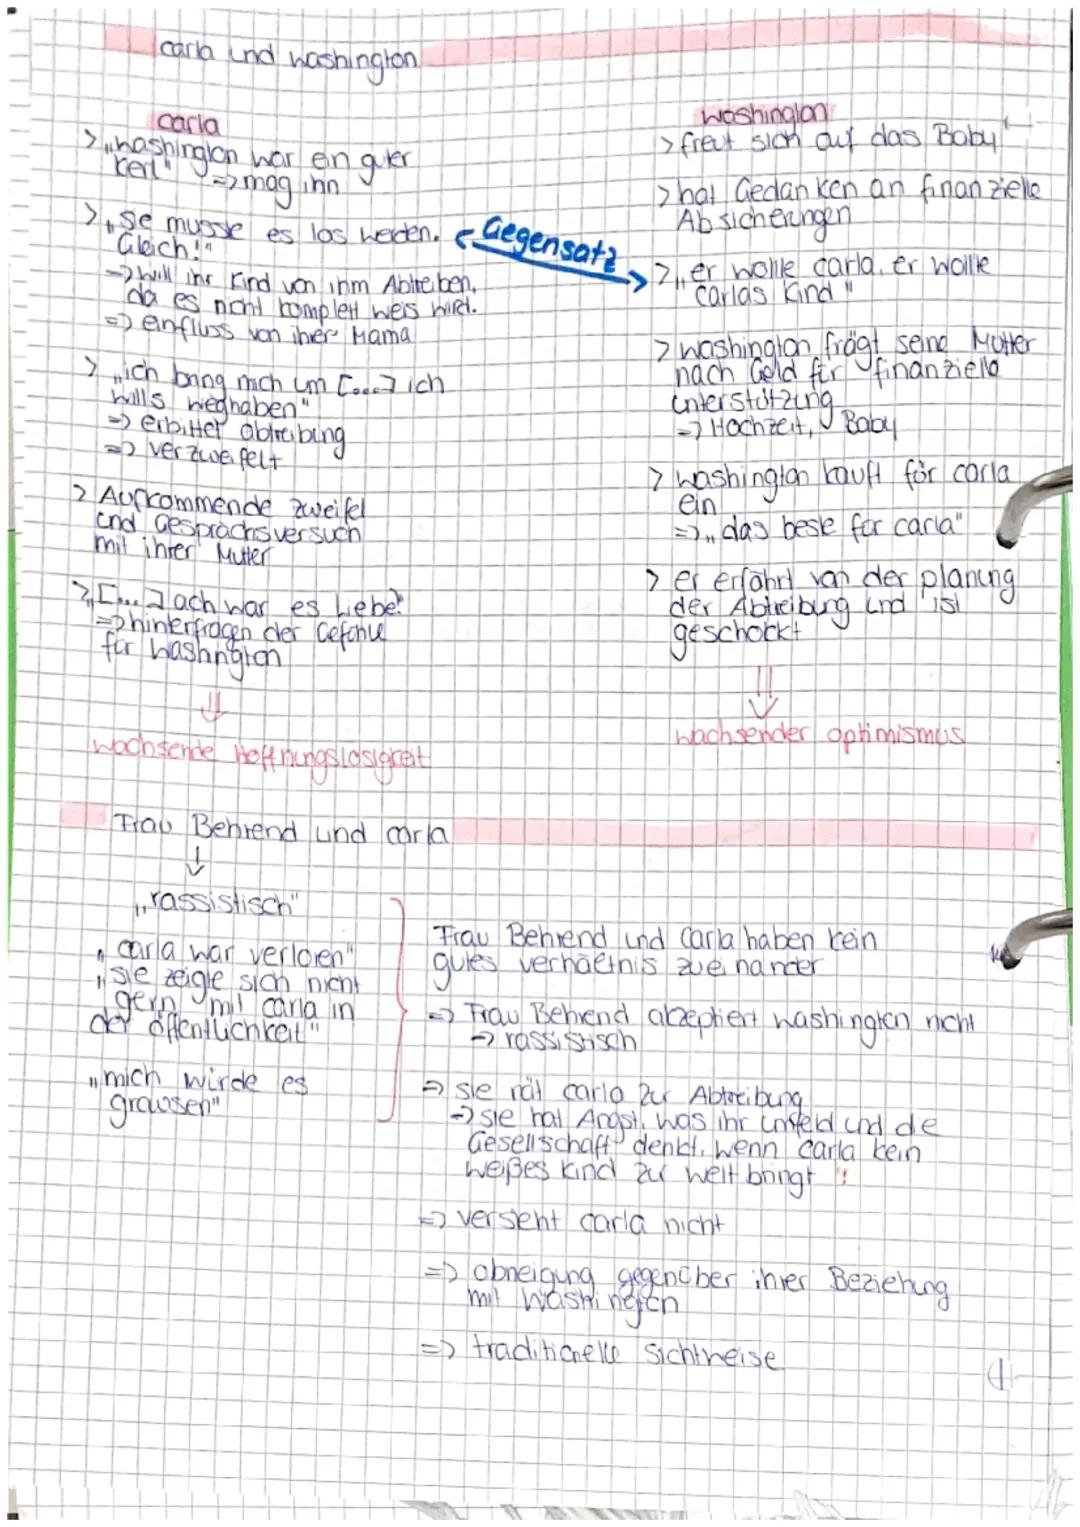 carla und washington
carla
> „washington war ein guter
kerl" => mag ihn
> „sie musste es los werden.
Gleich!"
=> will ihr Kind von ihm Abtreiben,
da es nicht komplett weis wird.
=> einfluss von ihrer Mama
> „ich bring mich um [...] ich
wills weghaben"
=> erbittet abtreibung
=> verzweifelt
> Aufkommende zweifel
und Gesprächsversuch
mit ihrer Mutter
> „[...] ach war es Liebe?"
=> hinterfragen der Gefühle
für washington
wachsende hoffnungslosigkeit
Gegensatz
washington
> freut sich auf das Baby
> hat Gedanken an finanzielle
Absicherungen
> „er wolle carla, er wolle
carlas Kind"
> washington frägt seine Mutter
nach Geld für finanzielle
unterstützung
=> Hochzeit, Baby
> washington kauft für carla
ein
=> „das beste für carla"
> er erfährt von der planung
der Abtreibung und ist
geschockt
wachsender optimismus
Frau Behrend und carla
„rassistisch"
„carla war verloren"
„sie zeigte sich nicht
gern mit carla in
der öffentlichkeit"
„mich würde es
grausen"
Frau Behrend und Carla haben kein
gutes verhältnis zueinander
=> Frau Behrend akzeptiert washington nicht
-> rassistisch
=> sie rät carla zur Abtreibung
-> sie hat Angst, was ihr umfeld und die
Gesellschaft denkt, wenn carla kein
weißes kind zur welt bringt !
=> versteht carla nicht
=> abneigung gegenüber ihrer Beziehung
mit washington
=> traditionelle Sichtweise